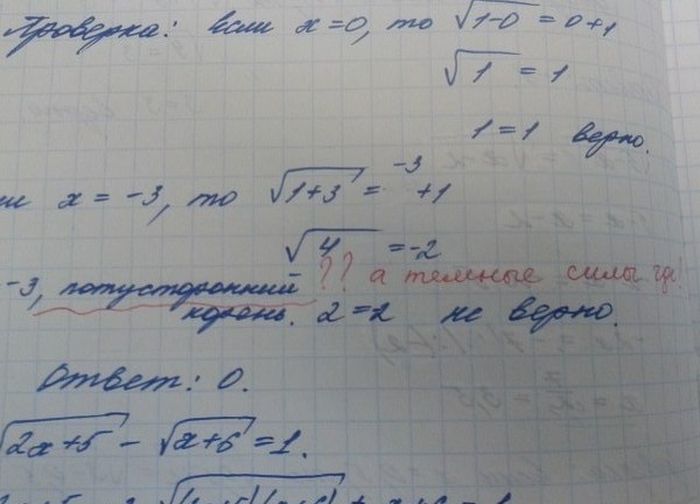 Проверка: если x=0, то √1-0 = 0+1
√1 = 1
1=1 верно.
x = -3, то √1+3 = -3+1
√4 = -2
-3, потусторонний ?? а темные силы где
корень. 2=2 не верно.
Ответ: 0.
√2x+5 - √x+6 = 1.